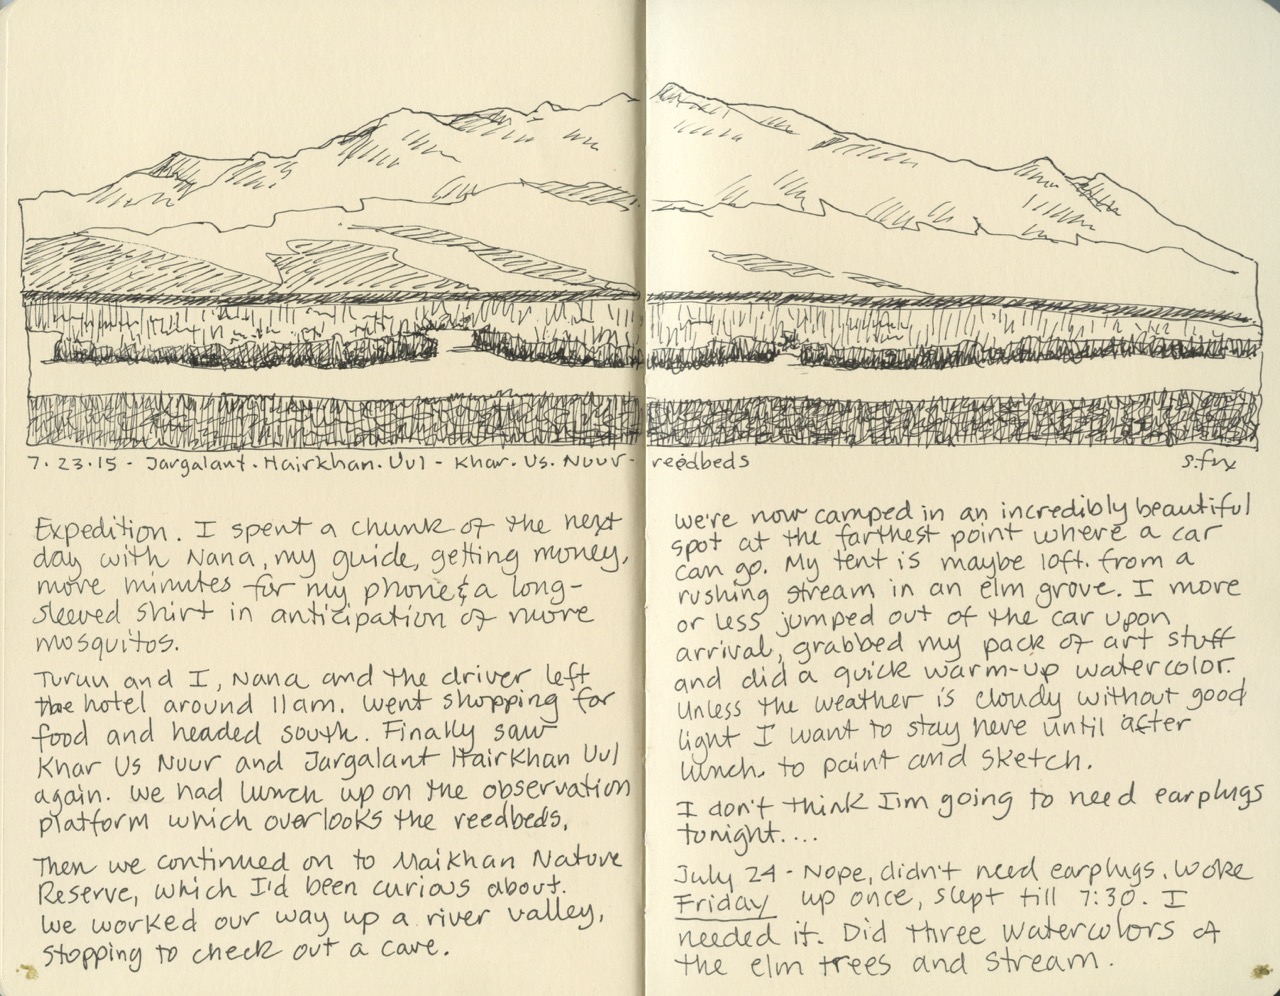 7.23.15 - Jargalant. Hairkhan. Uul - Khar. Us. Nuur - reedbeds
s.fox
Expedition. I spent a chunk of the next
day with Nana, my guide, getting money,
more minutes for my phone & a long-
sleeved shirt in anticipation of more
mosquitos.
Turuu and I, Nana and the driver left
the hotel around 11am. Went shopping for
food and headed south. Finally saw
Khar Us Nuur and Jargalant Hairkhan Uul
again. We had lunch up on the observation
platform which overlooks the reedbeds.
Then we continued on to Maikhan Nature
Reserve, which I'd been curious about.
We worked our way up a river valley,
stopping to check out a cave.
We're now camped in an incredibly beautiful
spot at the farthest point where a car
can go. My tent is maybe 10ft. from a
rushing stream in an elm grove. I more
or less jumped out of the car upon
arrival, grabbed my pack of art stuff
and did a quick warm-up watercolor.
Unless the weather is cloudy without good
light I want to stay here until after
lunch to paint and sketch.
I don't think I'm going to need earplugs
tonight....
July 24 - Nope, didn't need earplugs. Woke
Friday up once, slept till 7:30. I
needed it. Did three watercolors of
the elm trees and stream.